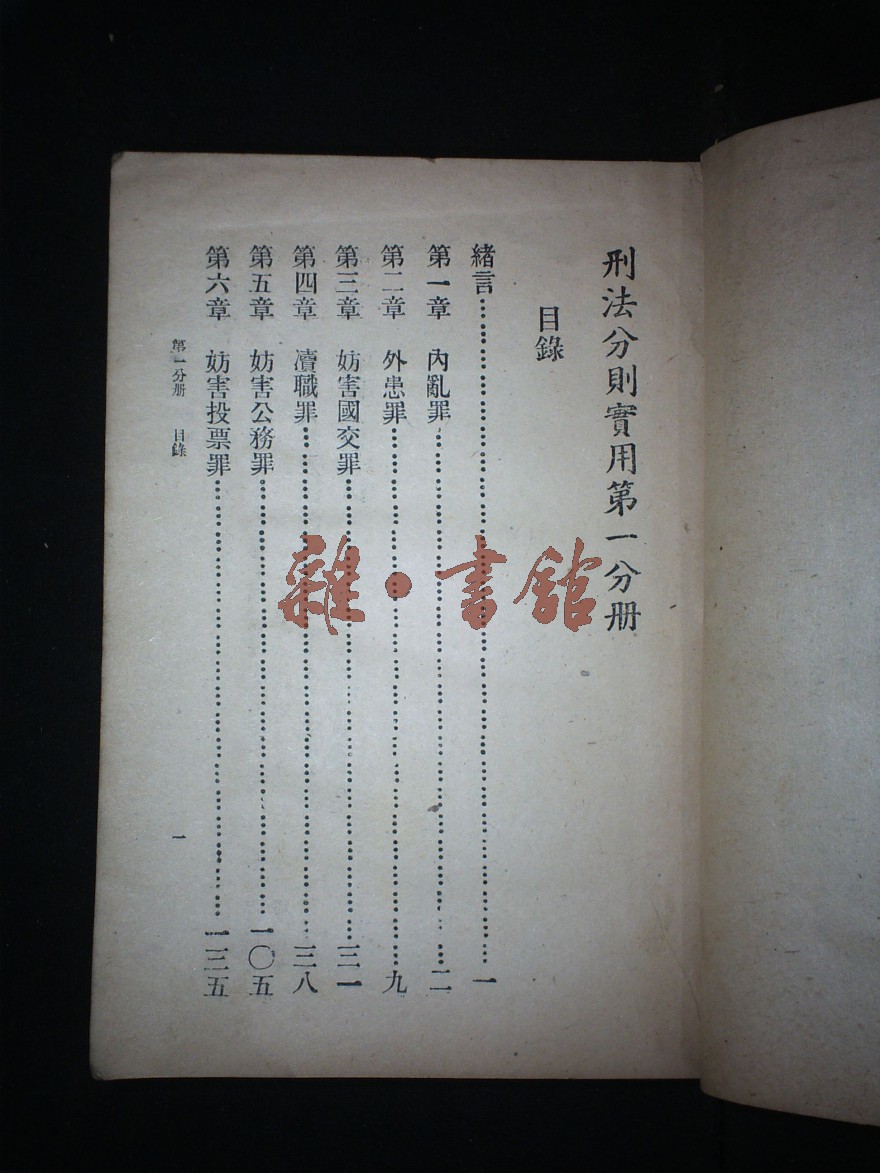 刑法分則實用第一分册
目錄
緒言……一
第一章　內亂罪……二
第二章　外患罪……九
第三章　妨害國交罪……三一
第四章　瀆職罪……三八
第五章　妨害公務罪……一〇五
第六章　妨害投票罪……一三五
第一分册　目錄　一
雜·書館